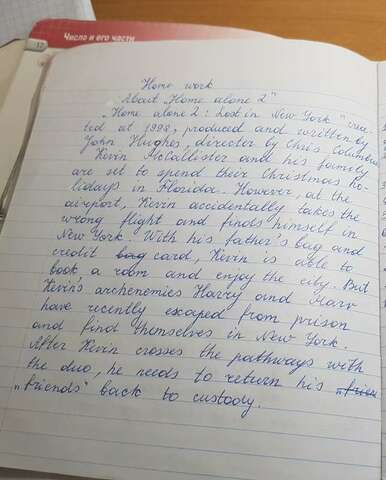 12
Число и его части
Home work
"About "Home alone 2"
"Home alone 2: Lost in New York" crea-
ted at 1992, produced and written by
John Hughes, director by Chris Columbus
Kevin McCallister and his family
are set to spend their Christmas ho-
lidays in Florida. However, at the
airport, Kevin accidentally takes the
wrong flight and finds himself in
New York. With his father's bag and
credit bag card, Kevin is able to
book a room and enjoy the city. But
Kevin's archenemies Harry and Marv
have recently escaped from prison
and find themselves in New York.
After Kevin crosses the pathways with
the duo, he needs to return his „frien
„friends" back to custody.